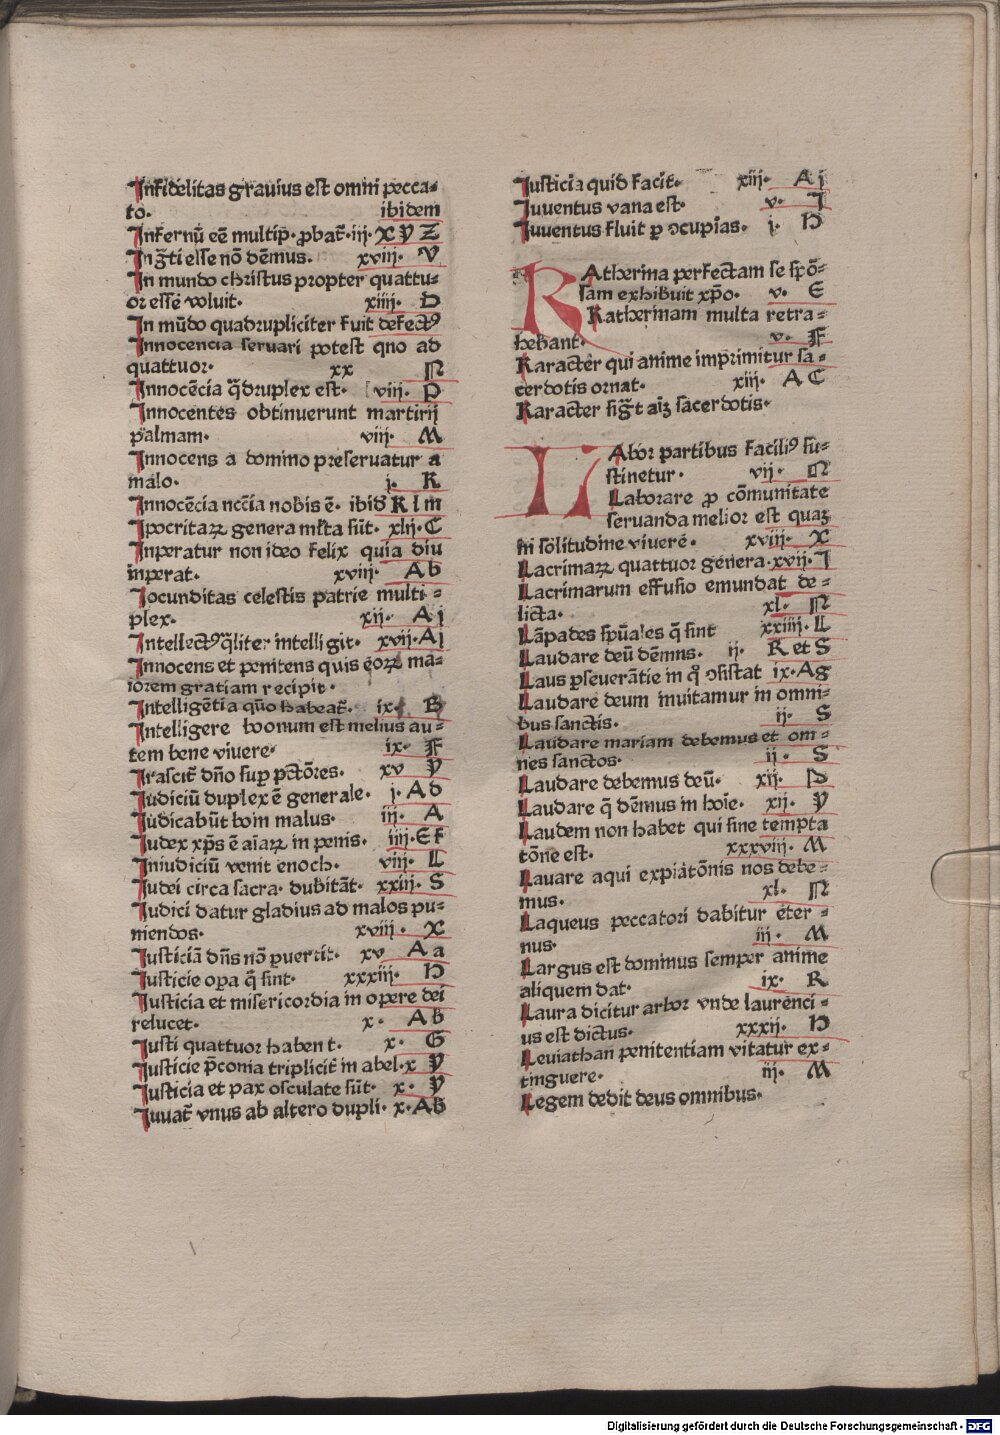 Infidelitas grauius est omni pecca⸗
to. ibidem
Infernū eē multip̄. ꝓbat̄. iii. X Y Z
Ingr̄ti esse nō dēmus. xviii. V
In mundo christus propter quattu⸗
or esse voluit. xiiii. D
In mūdo quadrupliciter fuit defectꝰ
Innocencia seruari potest qno ad
quattuor. xx N
Innocēcia q̄druplex est. viii. P
Innocentes obtinuerunt martirij
palmam. viii. M
Innocens a domino preseruatur a
malo. i. K
Innocēcia nēcia nobis ē. ibid K l m
Ipocritaꝝ genera ml̄ta sūt. xlii. C
Inperatur non ideo felix quia diu
inperat. xviii. Ab
Iocunditas celestis patrie multi⸗
plex. xii. Ai
Intellectꝰ q̄liter intelligit. xvii. Ai
Innocens et penitens quis eoꝝ ma⸗
iorem gratiam recipit.
Intelligētia quō habeat̄. ix. B
Intelligere bonum est melius au⸗
tem bene viuere. ix. F
Irascit̄ dn̄o sup̄ pctōres. xv Y
Iudiciū duplex ē generale. i. Ad
Iudicabūt boni malus. iii. A
Iudex xp̄s ē aīaꝝ in penis. iiii. Ef
Iniudiciū venit enoch. viii. L
Iudei circa sacra dubitāt. xxiii. S
Iudici datur gladius ad malos pu⸗
niendos. xviii. X
Iusticiā dn̄s nō ꝑuertit. xv Aa
Iusticie oꝑa q̄ sint. xxxiii. H
Iusticia et misericordia in opere dei
relucet. x. Ab
Iusti quattuor habent. x. G
Iusticie p̄conia triplicit̄ in abel. x Y
Iusticia et pax osculate sūt. x. Y
Iuuat̄ vnus ab altero dupli. x. Ab
Iusticia quid facit. xiii. Ai
Iuuentus vana est. v. I
Iuuentus fluit ꝑ ɔcupias. i. H
KAtherina perfectam se spō⸗
sam exhibuit xp̄o. v. E
Katherinam multa retra⸗
hebant. v. F
Karacter qui anime imprimitur sa⸗
cerdotis ornat. xiii. A C
Karacter sigt̄ aīꝫ sacerdotis.
LAbor partibus faciliꝰ su⸗
stinetur. vii. N
Laborare ꝓ cōmunitate
seruanda melior est quaꝫ
in solitudine viuere. xviii. X
Lacrimaꝝ quattuor genera. xvii. I
Lacrimarum effusio emundat de⸗
licta. xl. N
Lāpades spūales q̄ sint xxiiii. L
Laudare deū dēmns. ii. R et S
Laus ꝑseuerātie in qͦ ɔsistat ix. Ag
Laudare deum inuitamur in omni⸗
bus sanctis. ii. S
Laudare mariam debemus et om⸗
nes sanctos. ii. S
Laudare debemus deū. xii. D
Laudare q̄ dēmus in hoīe. xii. Y
Laudem non habet qui sine tempta
tōne est. xxxviii. M
Lauare aqui expiatōnis nos debe⸗
mus. xl. N
Laqueus peccatori dabitur eter⸗
nus. iii. M
Largus est dominus semper anime
aliquem dat. ix. R
Laura dicitur arbor vnde laurenci⸗
us est dictus. xxxii. H
Leuiathan penitentiam vitatur ex⸗
tinguere. iii. M
Legem dedit deus omnibus.
Digitalisierung gefördert durch die Deutsche Forschungsgemeinschaft - DFG